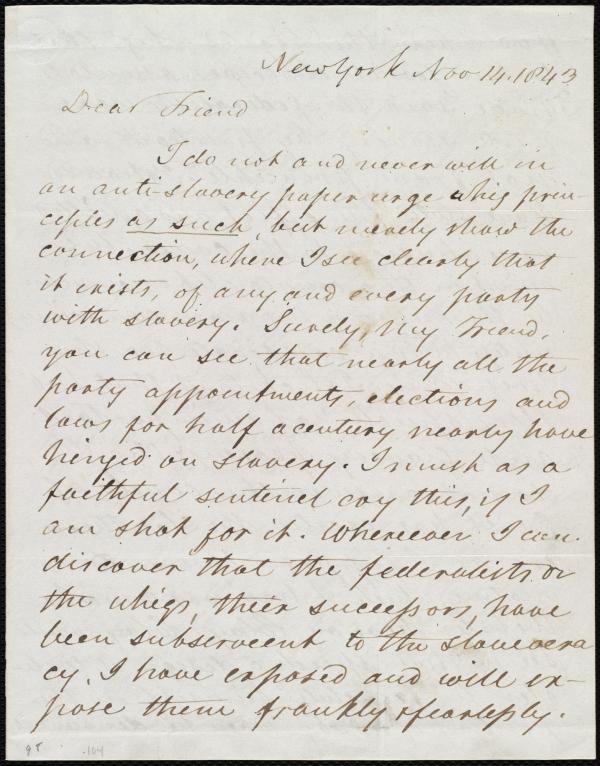 New York Nov 14. 1843
Dear Friend
I do not and never will in
an anti-slavery paper urge whig prin-
ciples as such, but merely show the
connection, where I see clearly that
it exists, of any and every party
with slavery. Surely, My Friend,
you can see that nearly all the
party appointments, elections and
laws for half a century nearly have
hinged on slavery. I must as a
faithful sentinel cry this, if I
am shot for it. Wherever I can
discover that the federalists or
the whigs, their successors, have
been subservient to the slaveocra
cy, I have exposed and will ex-
pose them frankly & fearlessly.